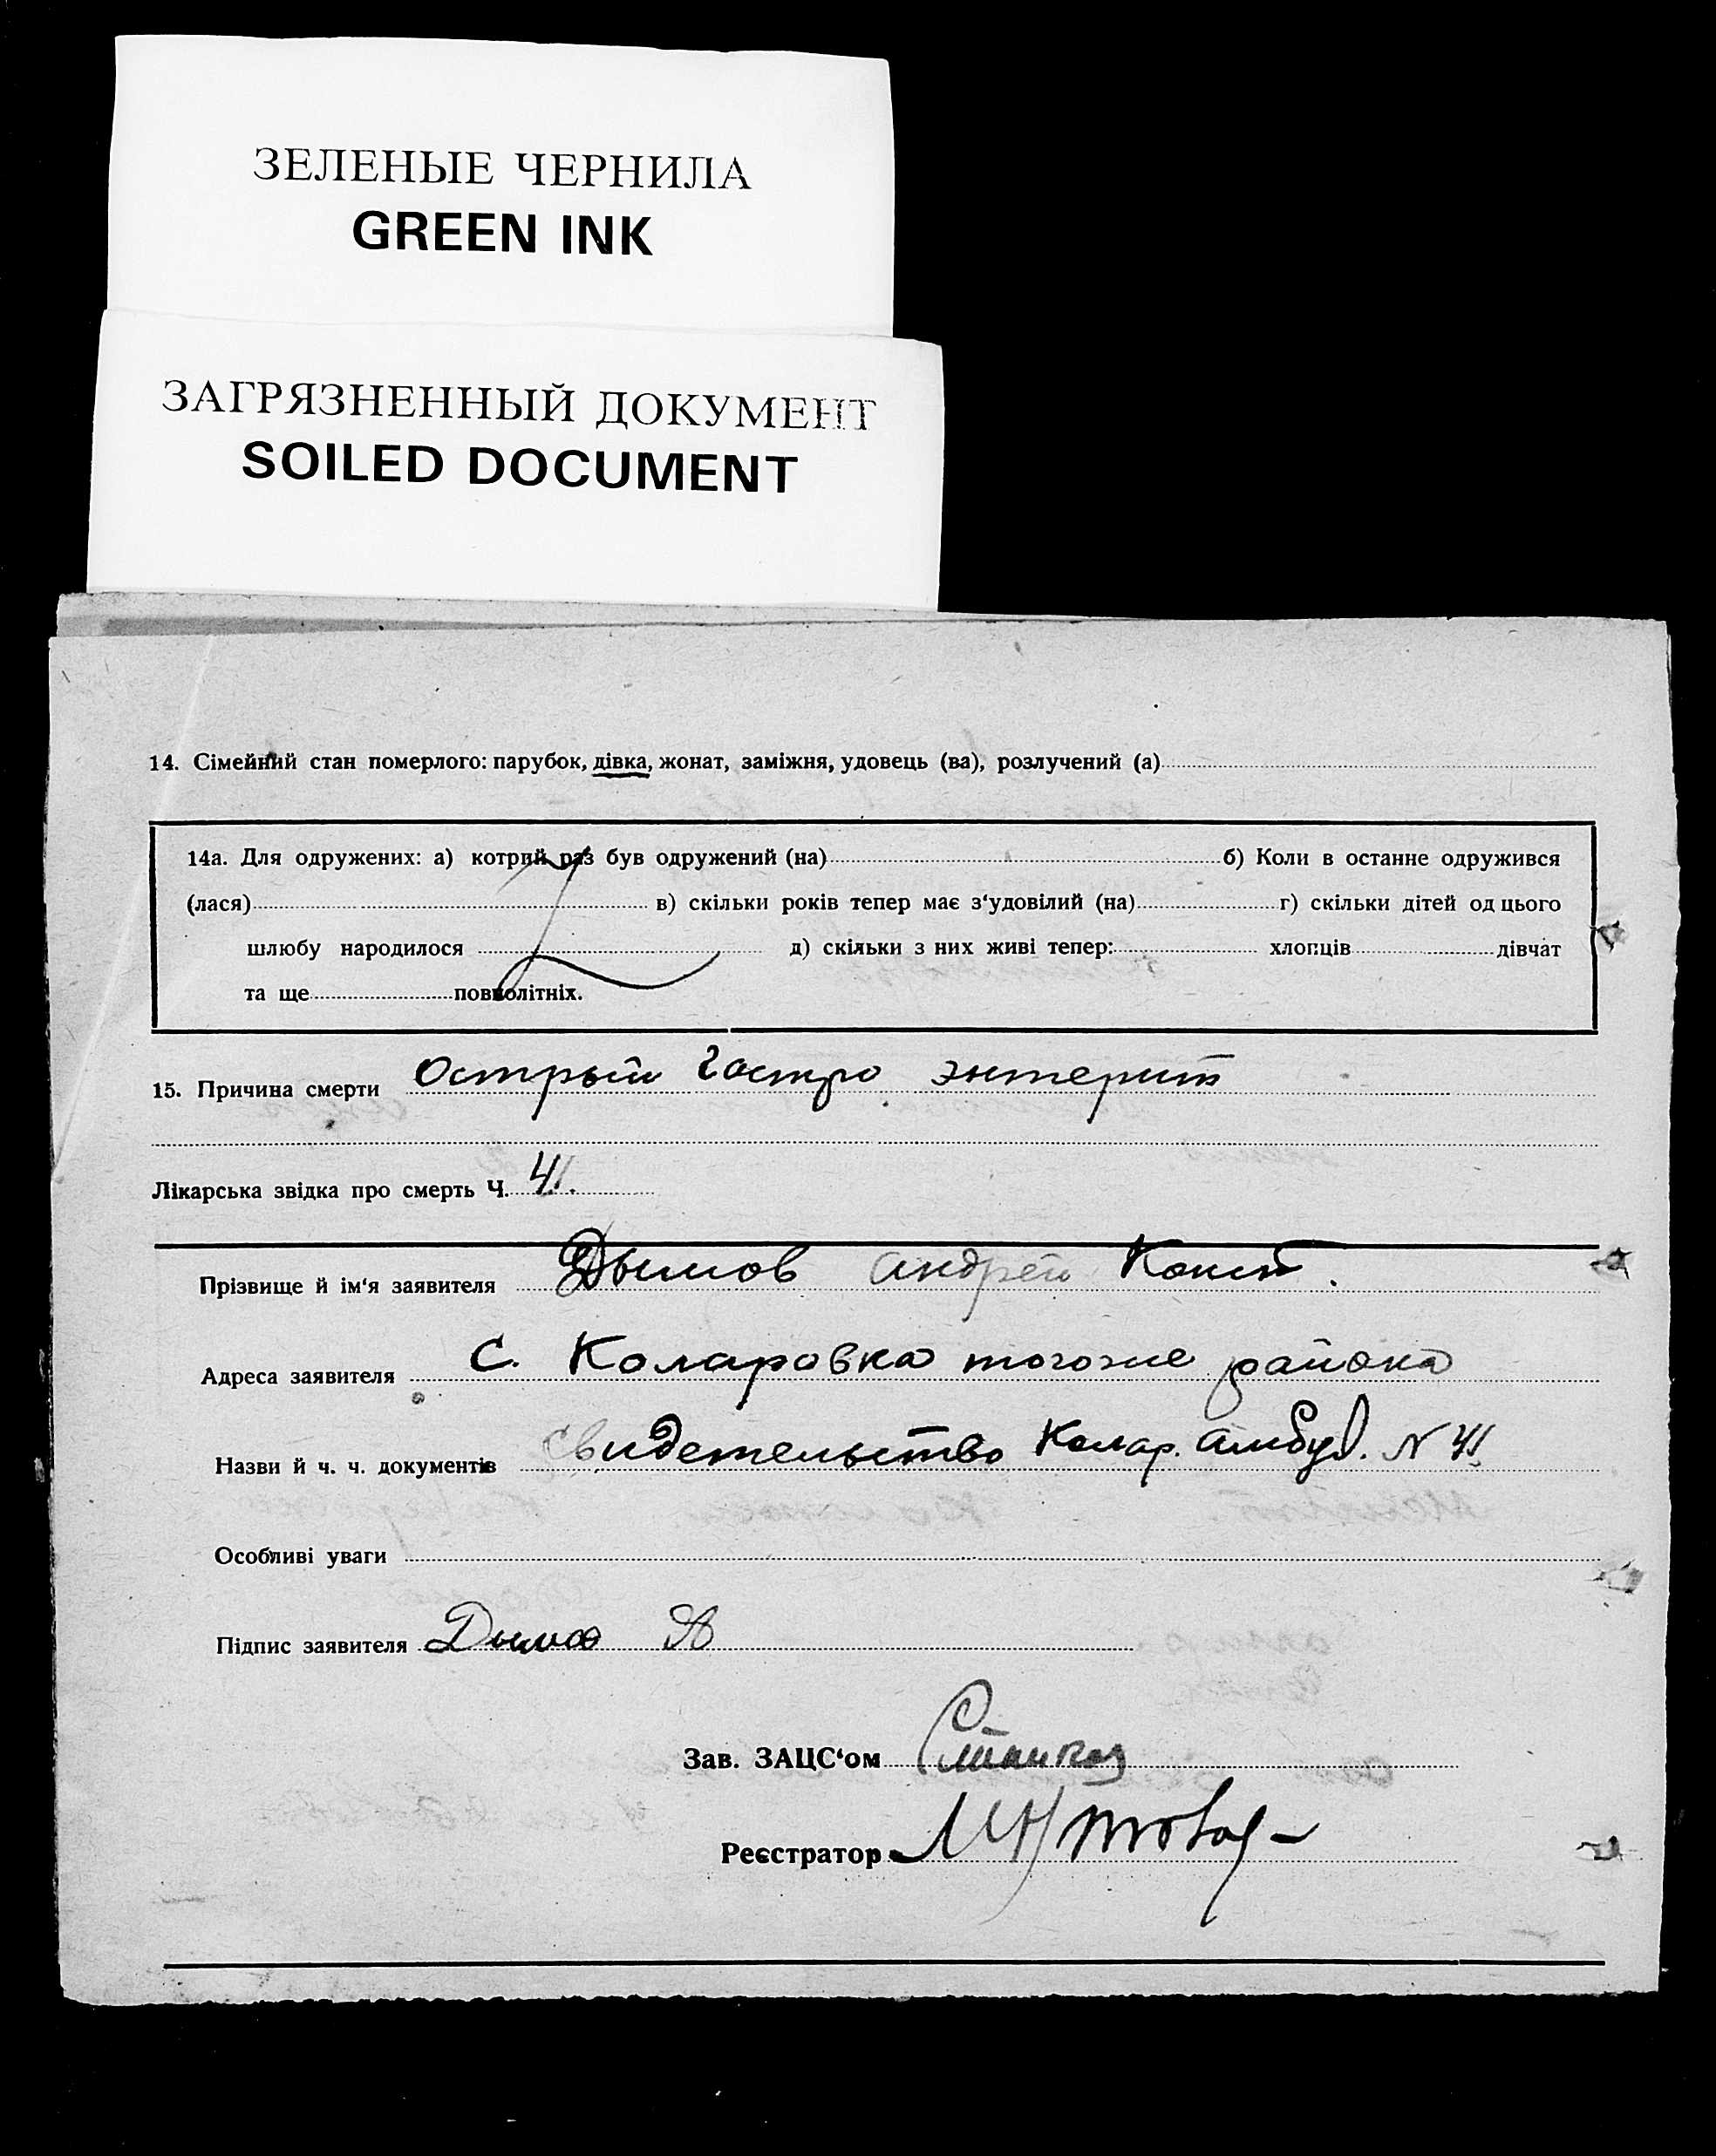 ЗЕЛЕНЫЕ ЧЕРНИЛА
GREEN INK
ЗАГРЯЗНЕННЫЙ ДОКУМЕНТ
SOILED DOCUMENT
14. Сімейний стан померлого: парубок, дівка, жонат, заміжня, удовець (ва), розлучений (а)
14а. Для одружених: а) котрий раз був одружений (на) б) Коли в останне одружився
(лася) в) скільки років тепер має з‘удовілий (на) г) скільки дітей од цього
шлюбу народилося д) скільки з них живі тепер: хлопців дівчат
та ще повнолітніх.
15. Причина смерти Острый гастро энтерит
Лікарська звідка про смерть Ч. 41.
Прізвище й ім‘я заявителя Дымов Андрей Конст.
Адреса заявителя с. Коларовка того же района
Назви й ч. ч. документів свидетельство Колар. амбул. N 41
Особливі уваги
Підпис заявителя Дымов А
Зав. ЗАЦС‘ом
Реєстратор